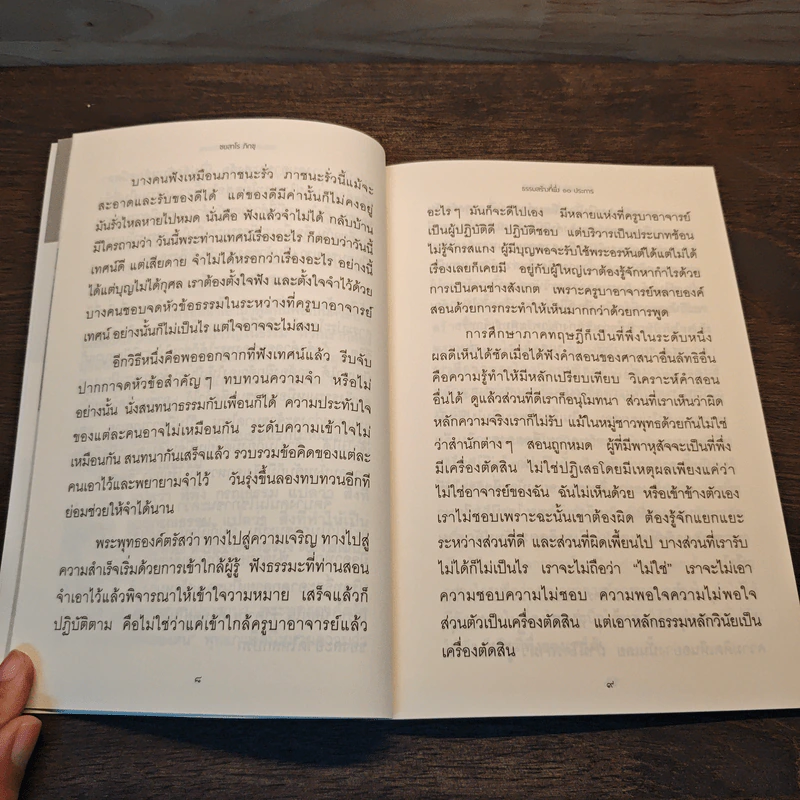 ชยสาโร ภิกขุ
บางคนฟังเหมือนภาชนะรั่ว ภาชนะรั่วนี้แม้จะ
สะอาดและรับของดีได้ แต่ของดีมีค่านั้นก็ไม่คงอยู่
มันรั่วไหลหายไปหมด นั่นคือ ฟังแล้วจำไม่ได้ กลับบ้าน
มีใครถามว่า วันนี้พระท่านเทศน์เรื่องอะไร ก็ตอบว่าวันนี้
เทศน์ดี แต่เสียดาย จำไม่ได้หรอกว่าเรื่องอะไร อย่างนี้
ได้แต่บุญไม่ได้กุศล เราต้องตั้งใจฟัง และตั้งใจจำไว้ด้วย
บางคนชอบจดหัวข้อธรรมในระหว่างที่ครูบาอาจารย์
เทศน์ อย่างนั้นก็ไม่เป็นไร แต่ใจอาจจะไม่สงบ
อีกวิธีหนึ่งคือพอออกจากที่ฟังเทศน์แล้ว รีบจับ
ปากกาจดหัวข้อสำคัญๆ ทบทวนความจำ หรือไม่
อย่างนั้น นั่งสนทนาธรรมกับเพื่อนก็ได้ ความประทับใจ
ของแต่ละคนอาจไม่เหมือนกัน ระดับความเข้าใจไม่
เหมือนกัน สนทนากันเสร็จแล้ว รวบรวมข้อคิดของแต่ละ
คนเอาไว้และพยายามจำไว้ วันรุ่งขึ้นลองทบทวนอีกที
ย่อมช่วยให้จำได้นาน
พระพุทธองค์ตรัสว่า ทางไปสู่ความเจริญ ทางไปสู่
ความสำเร็จเริ่มด้วยการเข้าใกล้ผู้รู้ ฟังธรรมะที่ท่านสอน
จำเอาไว้แล้วพิจารณาให้เข้าใจความหมาย เสร็จแล้วก็
ปฏิบัติตาม คือไม่ใช่ว่าแค่เข้าใกล้ครูบาอาจารย์แล้ว
๘
ธรรมสร้างที่พึ่ง ๑๐ ประการ
อะไรๆ มันก็จะดีไปเอง มีหลายแห่งที่ครูบาอาจารย์
เป็นผู้ปฏิบัติดี ปฏิบัติชอบ แต่บริวารเป็นประเภทช้อน
ไม่รู้จักรสแกง ผู้มีบุญพอจะรับใช้พระอรหันต์ได้แต่ไม่ได้
เรื่องเลยก็เคยมี อยู่กับผู้ใหญ่เราต้องรู้จักหากำไรด้วย
การเป็นคนช่างสังเกต เพราะครูบาอาจารย์หลายองค์
สอนด้วยการกระทำให้เห็นมากกว่าด้วยการพูด
การศึกษาภาคทฤษฎีก็เป็นที่พึ่งในระดับหนึ่ง
ผลดีเห็นได้ชัดเมื่อได้ฟังคำสอนของศาสนาอื่นลัทธิอื่น
คือความรู้ทำให้มีหลักเปรียบเทียบ วิเคราะห์คำสอน
อื่นได้ ดูแล้วส่วนที่ดีเราก็อนุโมทนา ส่วนที่เราเห็นว่าผิด
หลักความจริงเราก็ไม่รับ แม้ในหมู่ชาวพุทธด้วยกันไม่ใช่
ว่าสำนักต่างๆ สอนถูกหมด ผู้ที่มีพาหุสัจจะเป็นที่พึ่ง
มีเครื่องตัดสิน ไม่ใช่ปฏิเสธโดยมีเหตุผลเพียงแค่ว่า
ไม่ใช่อาจารย์ของฉัน ฉันไม่เห็นด้วย หรือเข้าข้างตัวเอง
เราไม่ชอบเพราะฉะนั้นเขาต้องผิด ต้องรู้จักแยกแยะ
ระหว่างส่วนที่ดี และส่วนที่ผิดเพี้ยนไป บางส่วนที่เรารับ
ไม่ได้ก็ไม่เป็นไร เราจะไม่ถือว่า “ไม่ใช่” เราจะไม่เอา
ความชอบความไม่ชอบ ความพอใจความไม่พอใจ
ส่วนตัวเป็นเครื่องตัดสิน แต่เอาหลักธรรมหลักวินัยเป็น
เครื่องตัดสิน
๙